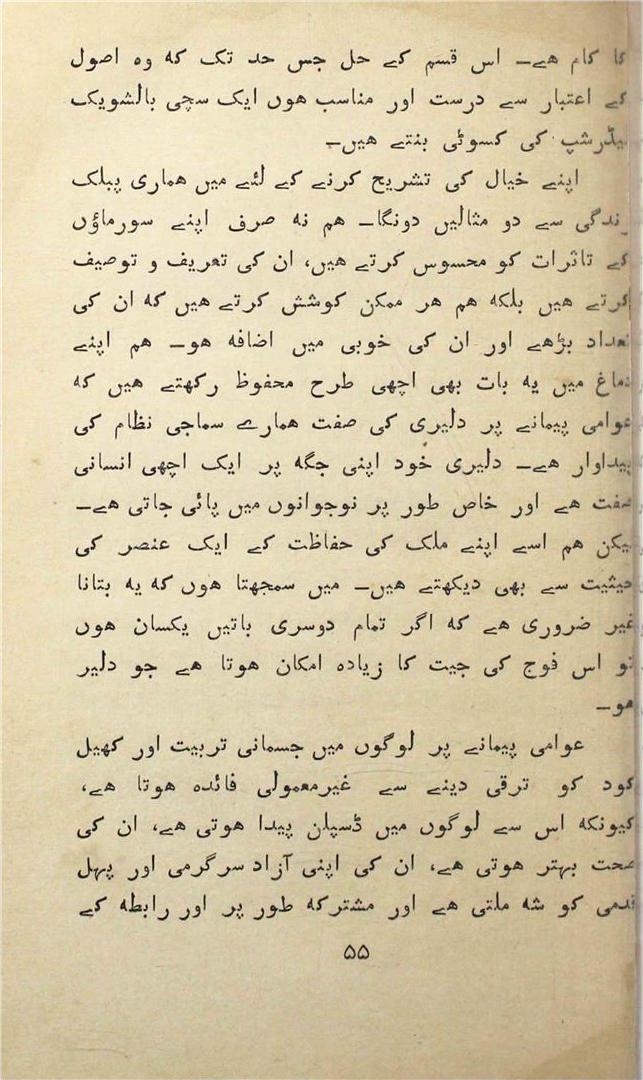 کا کام ہے۔ اس قسم کے حل جس حد تک کہ وہ اصول
کے اعتبار سے درست اور مناسب ہوں ایک سچی بالشویک
لیڈرشپ کی کسوٹی بنتے ہیں۔
اپنے خیال کی تشریح کرنے کے لئے میں ہماری پبلک
زندگی سے دو مثالیں دونگا۔ ہم نہ صرف اپنے سورماؤں
کے تاثرات کو محسوس کرتے ہیں، ان کی تعریف و توصیف
کرتے ہیں بلکہ ہم ہر ممکن کوشش کرتے ہیں کہ ان کی
تعداد بڑھے اور ان کی خوبی میں اضافہ ہو۔ ہم اپنے
دماغ میں یہ بات بھی اچھی طرح محفوظ رکھتے ہیں کہ
عوامی پیمانے پر دلیری کی صفت ہمارے سماجی نظام کی
پیداوار ہے۔ دلیری خود اپنی جگہ پر ایک اچھی انسانی
صفت ہے اور خاص طور پر نوجوانوں میں پائی جاتی ہے۔
لیکن ہم اسے اپنے ملک کی حفاظت کے ایک عنصر کی
حیثیت سے بھی دیکھتے ہیں۔ میں سمجھتا ہوں کہ یہ بتانا
غیر ضروری ہے کہ اگر تمام دوسری باتیں یکسان ہوں
تو اس فوج کی جیت کا زیادہ امکان ہوتا ہے جو دلیر
ہو۔
عوامی پیمانے پر لوگوں میں جسمانی تربیت اور کھیل
کود کو ترقی دینے سے غیرمعمولی فائدہ ہوتا ہے،
کیونکہ اس سے لوگوں میں ڈسپلن پیدا ہوتی ہے، ان کی
صحت بہتر ہوتی ہے، ان کی اپنی آزاد سرگرمی اور پہل
قدمی کو شہ ملتی ہے اور مشترکہ طور پر اور رابطہ کے
۵۵